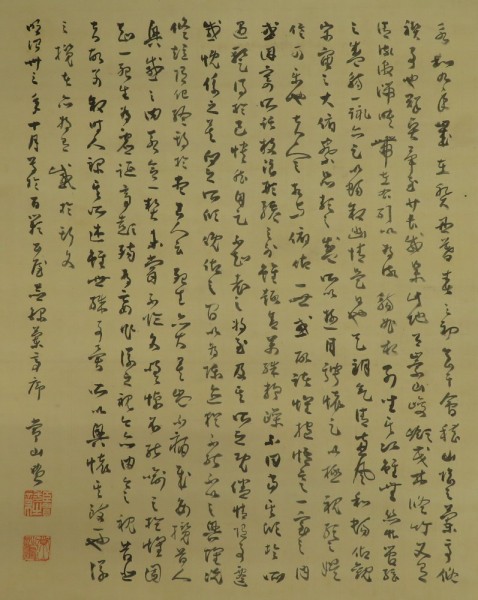 永和九年歲在癸丑暮春之初會于會稽山陰之蘭亭脩
禊事也群賢畢至少長咸集此地有崇山峻領茂林脩竹又有
清流激湍暎帶左右引以為流觴曲水列坐其次雖無絲竹管絃
之盛一觴一詠亦足以暢敘幽情是日也天朗氣清惠風和暢仰觀
宇宙之大俯察品類之盛所以遊目騁懷足以極視聽之娛
信可樂也夫人之相與俯仰一世或取諸懷抱悟言一室之內
或因寄所託放浪形骸之外雖趣舍萬殊靜躁不同當其欣於所
遇蹔得於己怏然自足不知老之將至及其所之既惓情隨事遷
感慨係之矣向之所欣俛仰之間以為陳迹猶不能不以之興懷況
脩短隨化終期於盡古人云死生亦大矣豈不痛哉每攬昔人
興感之由若合一契未嘗不臨文嗟悼不能喻之於懷固
知一死生為虛誕齊彭殤為妄作後之視今亦由今之視昔悲
夫故列敘時人錄其所述雖世殊事異所以興懷其致一也後
之攬者亦將有感於斯文
明治卅三年十月寫於 蘭亭序 常山